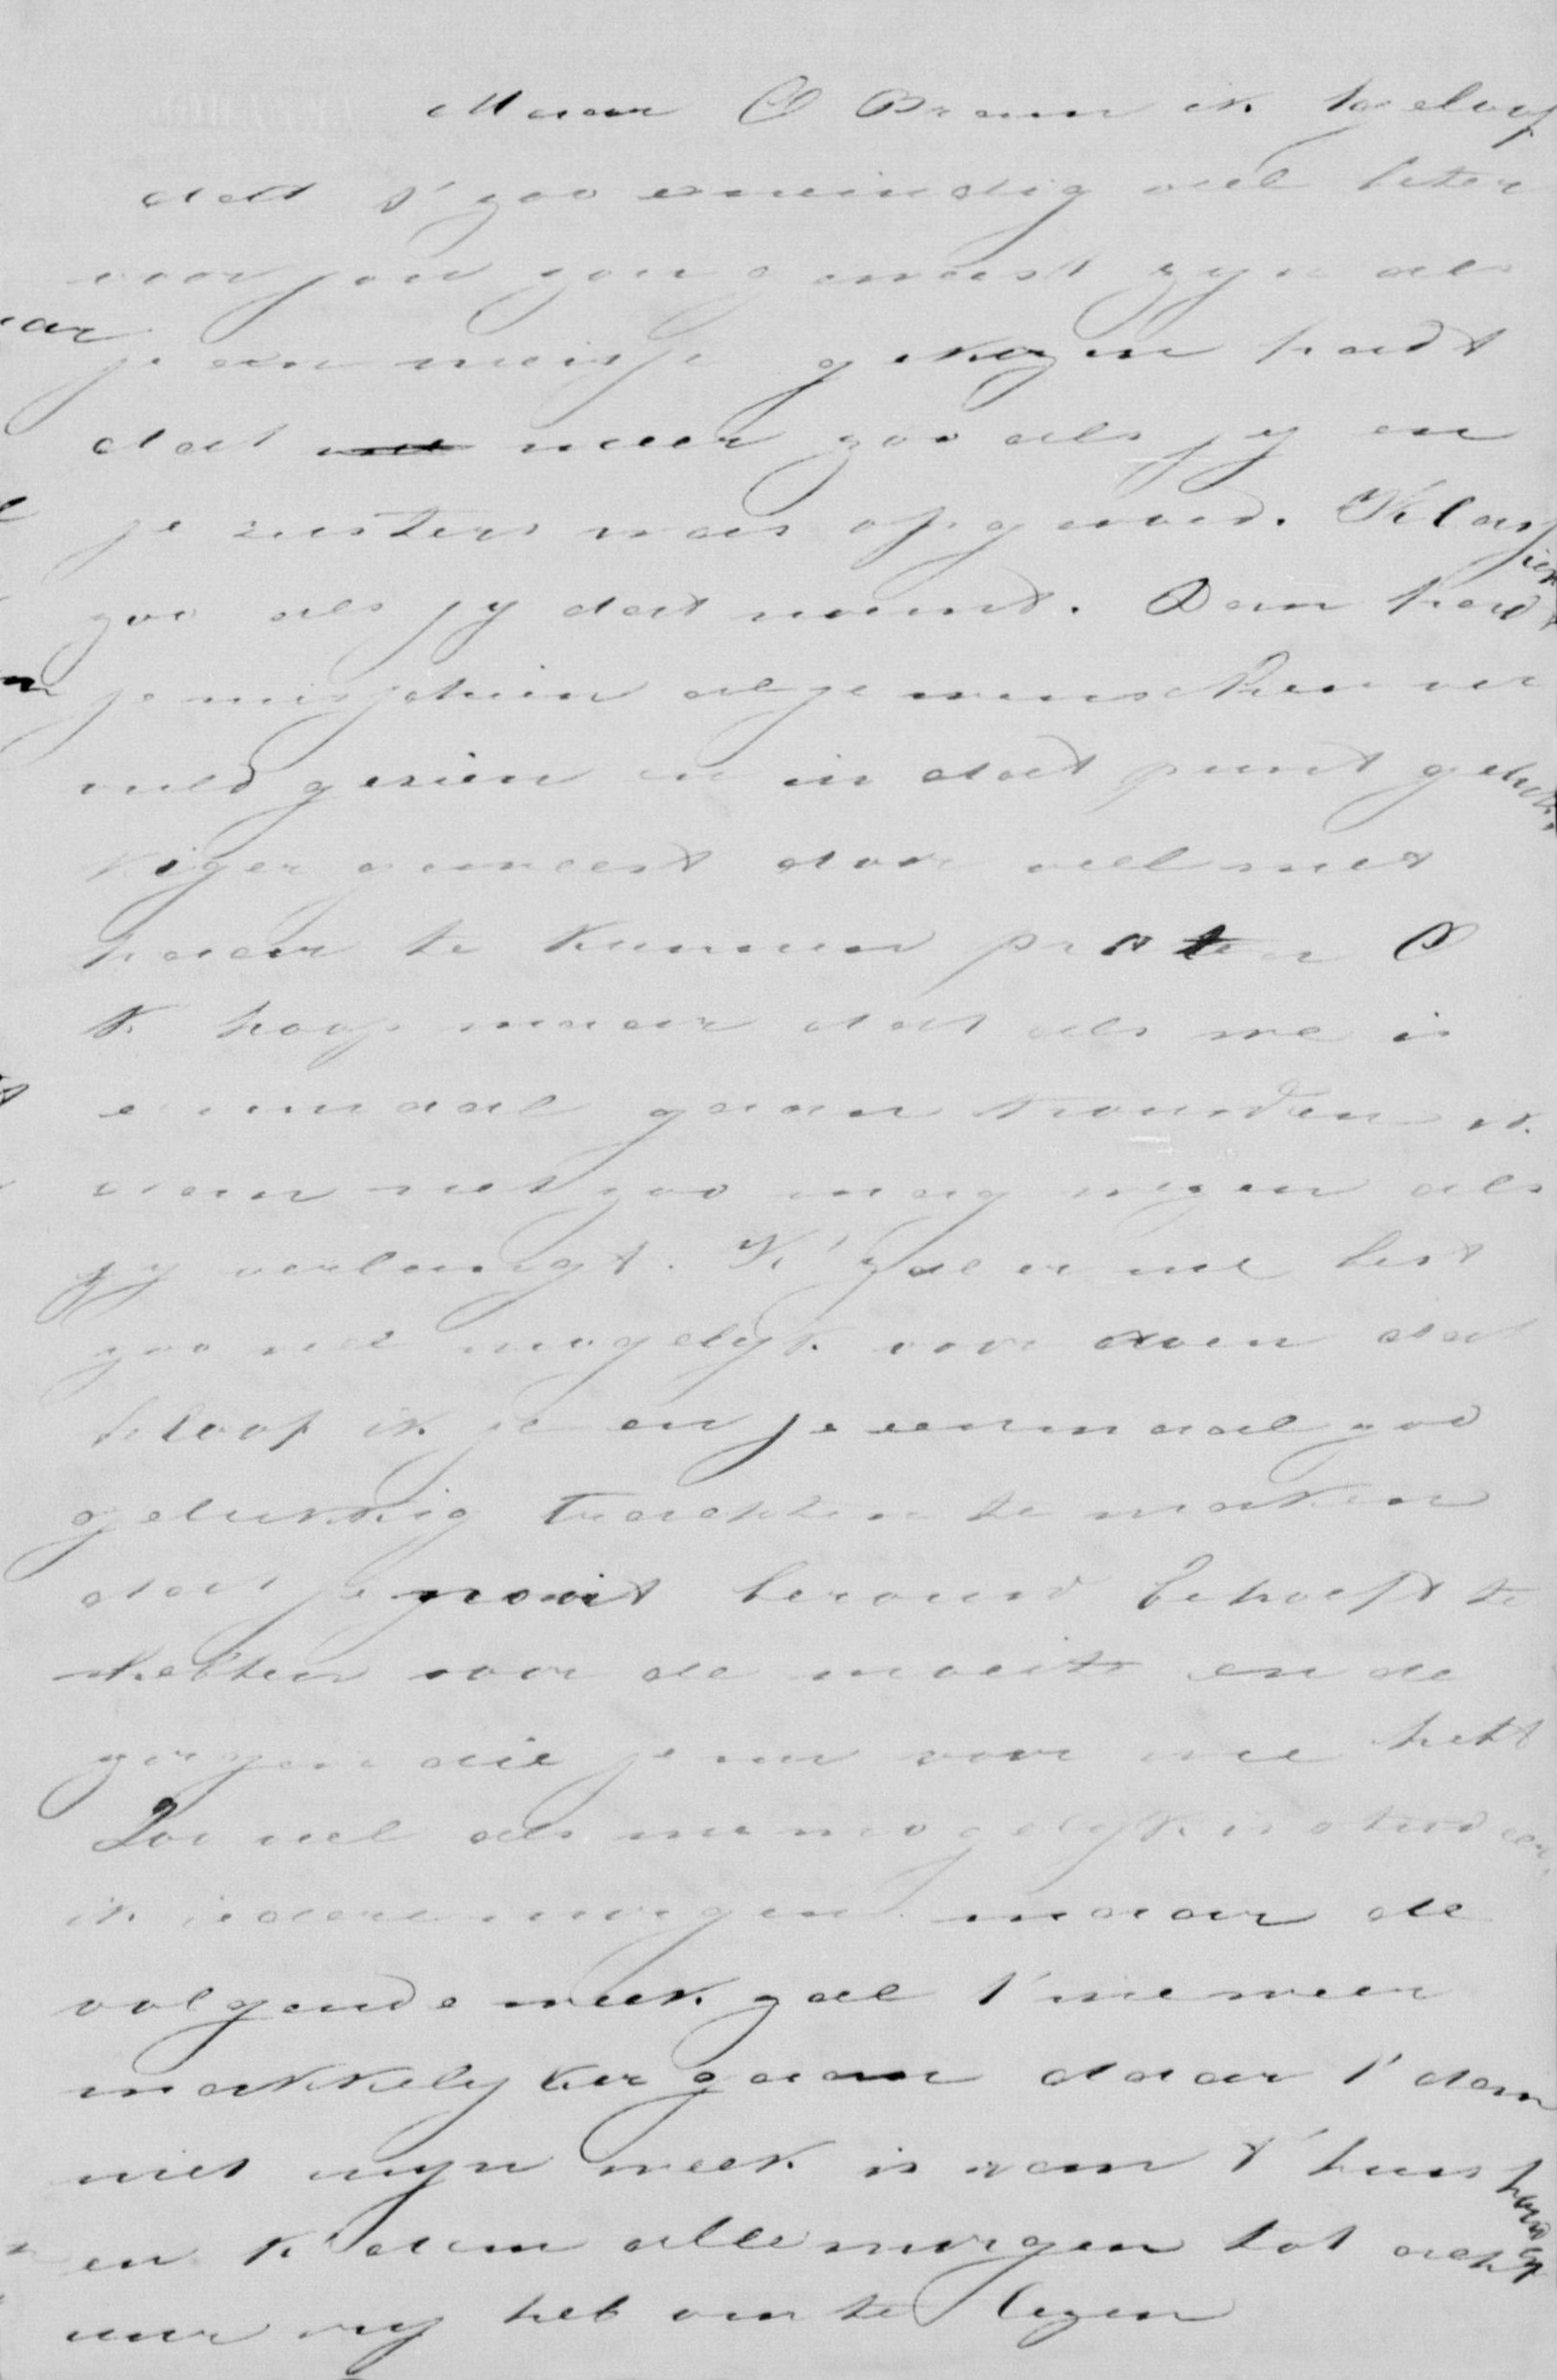 Maar O Bram ik geloof
dat t' zoo oneindig veel beter
voor jou zou geweest zyn als
je een meisje gekozen hadt
dat meer zoo als jy en
je zusters was opgevoed. Klassiek
zoo als jy dat noemt. Dan hadt
je misschien al je wenschen ver
vuld gezien en in dat punt geluk
kiger geweest door veel met
haar te kunnen praten O
K hoop maar dat als we is
eenmaal gaan trouwden ik
dan net zoo mag wezen als
jy verlangt. K' zal er me best
zoo veel mogelyk voor doen dat
beloof ik je en je eenmaal zoo
gelukkig trachten te maken
dat je nooit berouw behoeft te
hebben voor de moeite en de
zorgen die je nu voor me hebt
Zoo veel als me mogelyk is studeer
ik iedere morgen maar de
volgende week zal t' me weer
makkelyker gaan daar t' dan
niet myn week is van t' huishouden
en K dan alle morgen tot acht
uur vry heb om te lezen